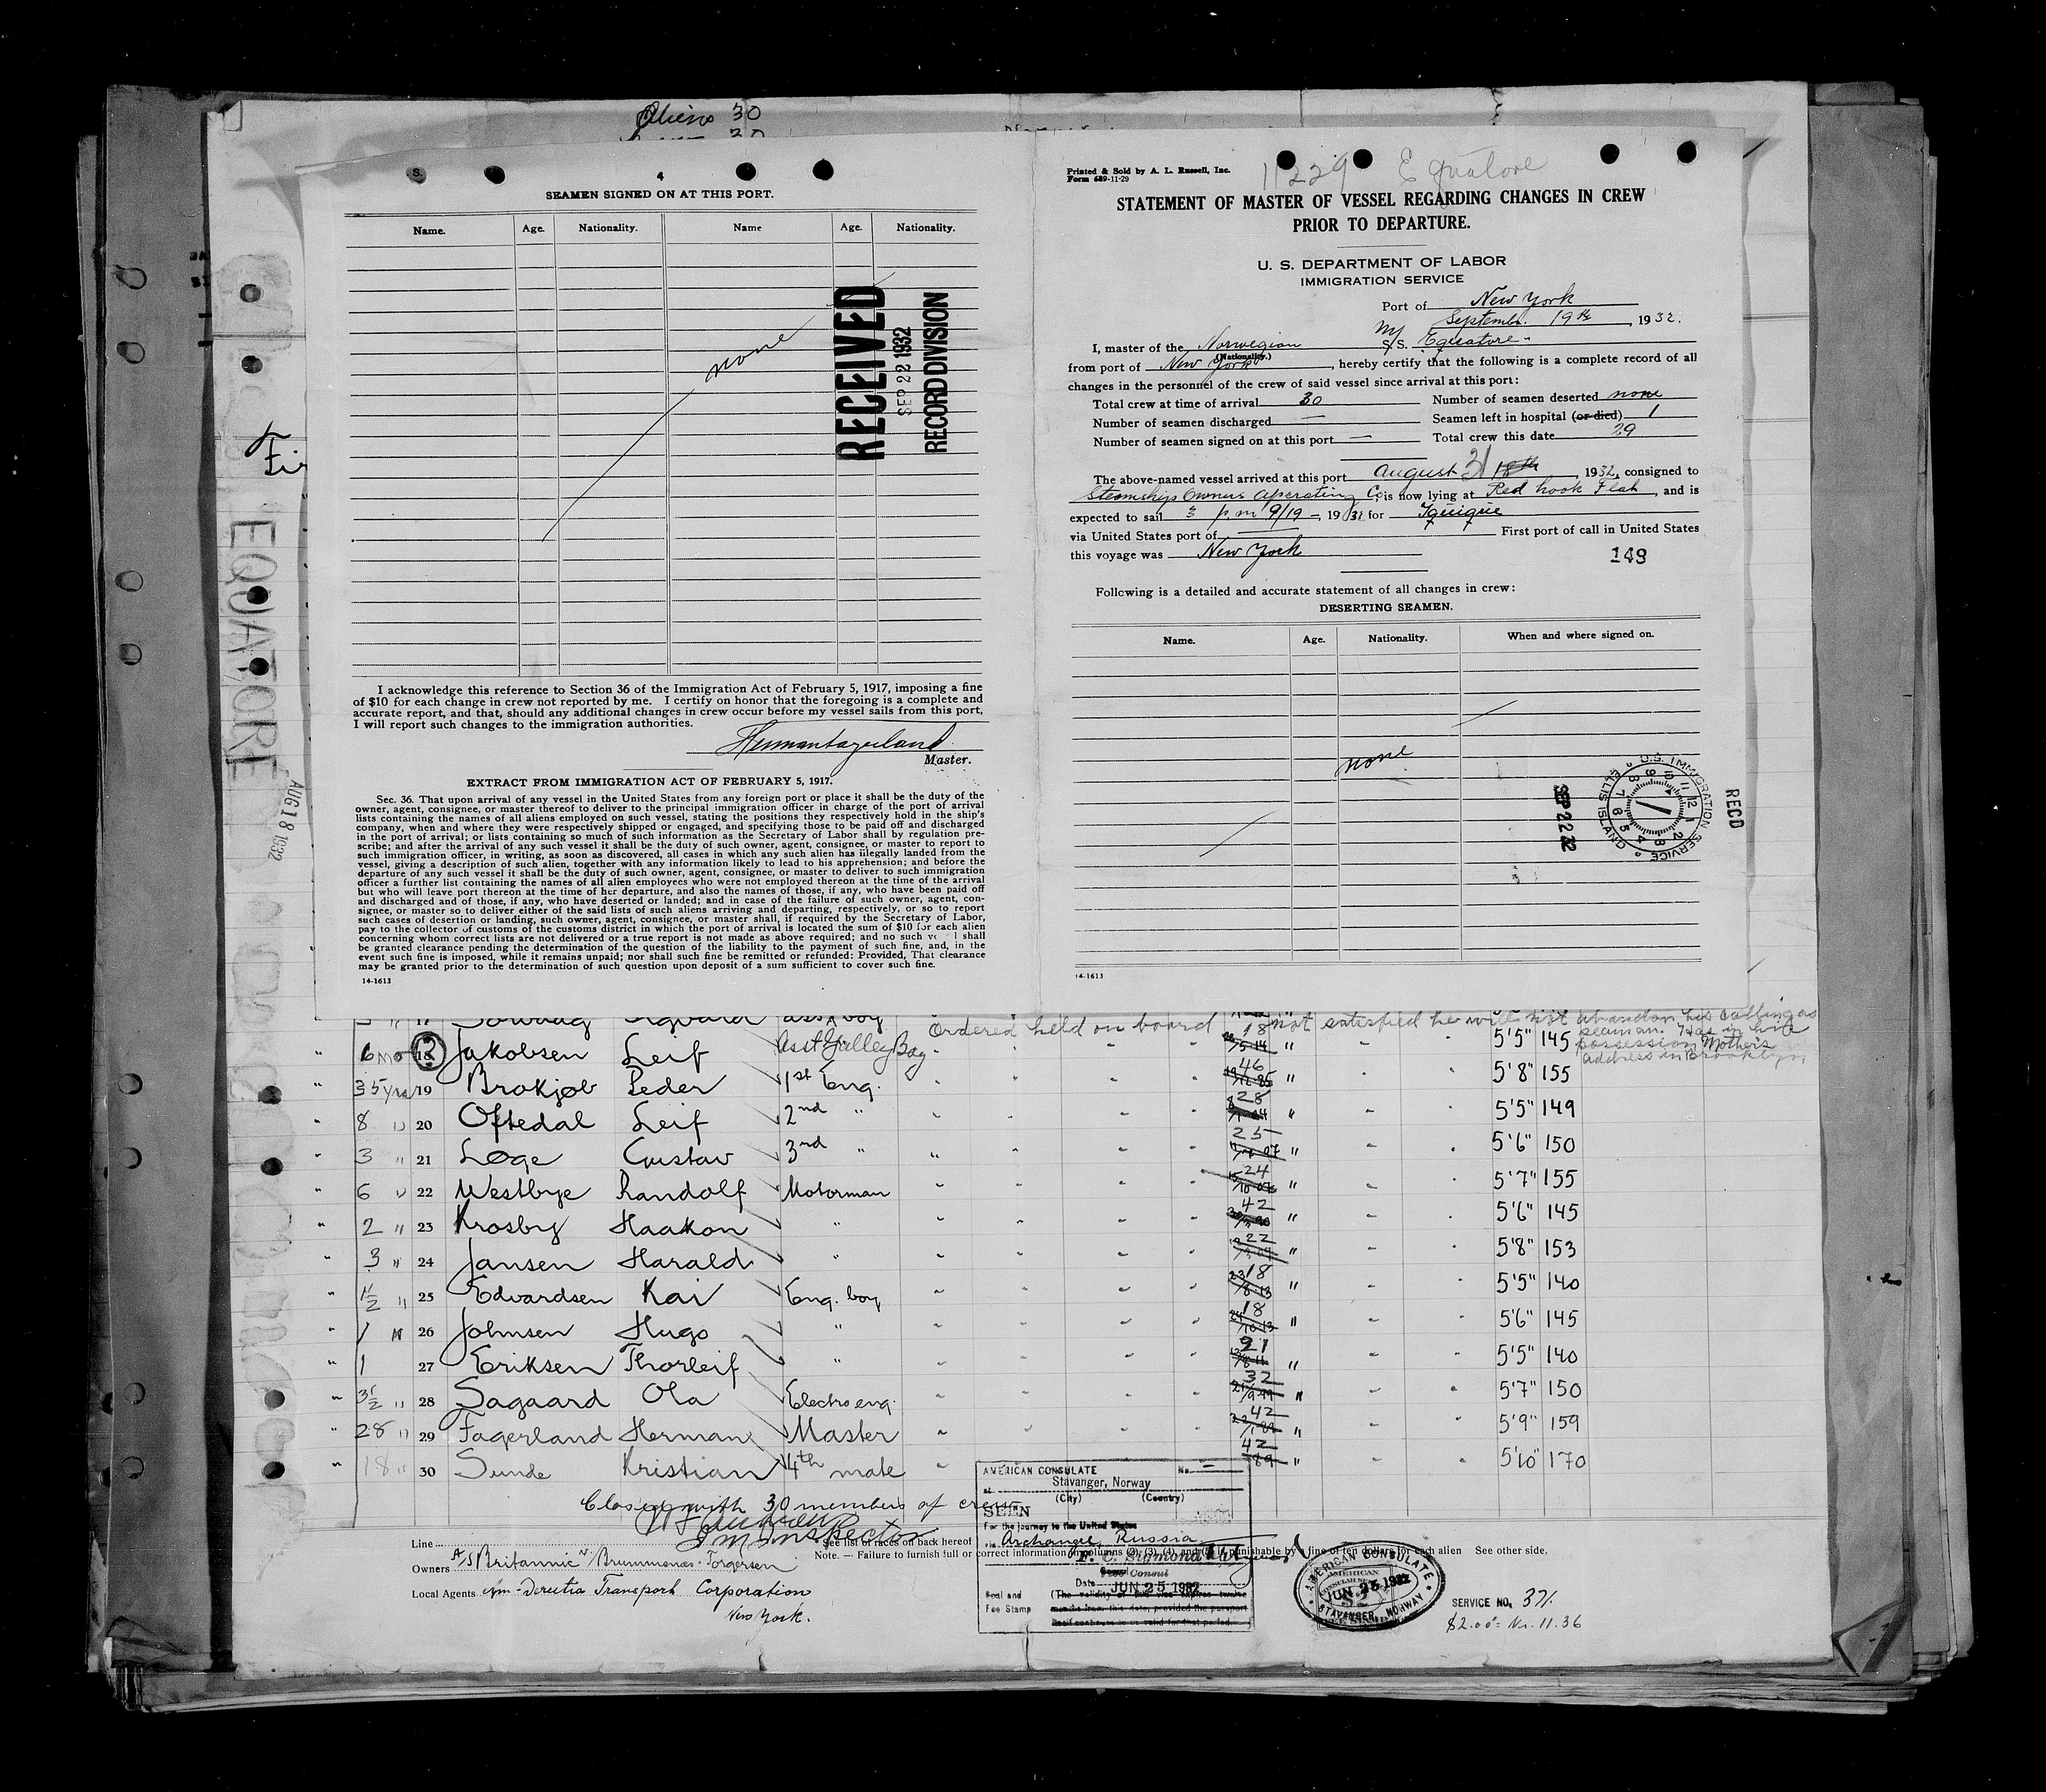 Aliens 30
S.
4
SEAMEN SIGNED ON AT THIS PORT.
Name. Age. Nationality. Name Age. Nationality.
none
RECEIVED
SEP 22 1932
RECORD DIVISION
I acknowledge this reference to Section 36 of the Immigration Act of February 5, 1917, imposing a fine
of $10 for each change in crew not reported by me. I certify on honor that the foregoing is a complete and
accurate report, and that, should any additional changes in crew occur before my vessel sails from this port,
I will report such changes to the immigration authorities.
Herman Fagerland
Master.
EXTRACT FROM IMMIGRATION ACT OF FEBRUARY 5, 1917.
Sec. 36. That upon arrival of any vessel in the United States from any foreign port or place it shall be the duty of the
owner, agent, consignee, or master thereof to deliver to the principal immigration officer in charge of the port of arrival
lists containing the names of all aliens employed on such vessel, stating the positions they respectively hold in the ship's
company, when and where they were respectively shipped or engaged, and specifying those to be paid off and discharged
in the port of arrival; or lists containing so much of such information as the Secretary of Labor shall by regulation pre-
scribe; and after the arrival of any such vessel it shall be the duty of such owner, agent, consignee, or master to report to
such immigration officer, in writing, as soon as discovered, all cases in which any such alien has illegally landed from the
vessel, giving a description of such alien, together with any information likely to lead to his apprehension; and before the
departure of any such vessel it shall be the duty of such owner, agent, consignee, or master to deliver to such immigration
officer a further list containing the names of all alien employees who were not employed thereon at the time of the arrival
but who will leave port thereon at the time of her departure, and also the names of those, if any, who have been paid off
and discharged and of those, if any, who have deserted or landed; and in case of the failure of such owner, agent, con-
signee, or master so to deliver either of the said lists of such aliens arriving and departing, respectively, or so to report
such cases of desertion or landing, such owner, agent, consignee, or master shall, if required by the Secretary of Labor,
pay to the collector of customs of the customs district in which the port of arrival is located the sum of $10 for each alien
concerning whom correct lists are not delivered or a true report is not made as above required; and no such ve l shall
be granted clearance pending the determination of the question of the liability to the payment of such fine, and, in the
event such fine is imposed, while it remains unpaid; nor shall such fine be remitted or refunded: Provided, That clearance
may be granted prior to the determination of such question upon deposit of a sum sufficient to cover such fine.
14-1613
Printed & Sold by A. L. Russell, Inc.
Form 689-11-29
11229 Equatore
STATEMENT OF MASTER OF VESSEL REGARDING CHANGES IN CREW
PRIOR TO DEPARTURE.
U. S. DEPARTMENT OF LABOR
IMMIGRATION SERVICE
Port of New York
September 19th, 1932.
I, master of the Norwegian M/S S. Equatore
(Nationality.)
from port of New York, hereby certify that the following is a complete record of all
changes in the personnel of the crew of said vessel since arrival at this port:
Total crew at time of arrival 30 Number of seamen deserted none
Number of seamen discharged — Seamen left in hospital (or died) 1
Number of seamen signed on at this port — Total crew this date 29
The above-named vessel arrived at this port August 31 18th, 1932, consigned to
Steamships Owners Operating Co, is now lying at Red hook Flat, and is
expected to sail 3 p.m 9/19 -, 1932 for Iquique
via United States port of First port of call in United States
this voyage was New York
149
Following is a detailed and accurate statement of all changes in crew:
DESERTING SEAMEN.
Name. Age. Nationality. When and where signed on.
none
U.S. IMMIGRATION SERVICE ELLIS ISLAND
SEP 22 32
RECD
14-1613
Fir
EQUATORE
AUG 18 1932
17 ass boy
Ordered held on board not satisfied he will not abandon his calling as
seaman. Has in his
possession Mother's
address in Brooklyn.
6 mo 18 Jakobsen Leif Asst Galley Boy 18 " 5'5" 145
35 yrs 19 Brokjob Peder 1st Eng. 46 " 5'8" 155
8 " 20 Oftedal Leif 2nd " 28 " 5'5" 149
3 " 21 Løge Gustav 3rd " 25 " 5'6" 150
6 " 22 Westbye Randolf Motorman 24 " 5'7" 155
2 " 23 Krosby Haakon " 42 " 5'6" 145
3 " 24 Jansen Harald " 22 " 5'8" 153
1 1/2 " 25 Edvardsen Kai Eng. boy 18 " 5'5" 140
1 " 26 Johnsen Hugo " 18 " 5'6" 145
1 27 Eriksen Thorleif " 21 " 5'5" 140
3 1/2 " 28 Sagaard Ola Electro eng. 32 " 5'7" 150
28 " 29 Fagerland Herman Master 42 " 5'9" 159
18 " 30 Sunde Kristian 4th mate 42 " 5'10" 170
Closed with 30 members of crew
Im Inspector
Line
Owners A/S Britannic Brummenæs Torgersen
Local Agents Am-Derutra Transport Corporation
New York.
See list of races on back hereof
Note. — Failure to furnish full or correct information in columns (2), (3), (4), and (5) is punishable by a fine of ten dollars for each alien See other side,
AMERICAN CONSULATE No. —
at Stavanger, Norway
(City) (Country)
SEEN
For the journey to the United States
via Archangel, Russia
Consul
Date JUN 25 1932
Seal and
Fee Stamp
AMERICAN CONSULATE
JUN 25 1932
STAVANGER, NORWAY
SERVICE NO. 371.
$2.00 = Nr. 11.36